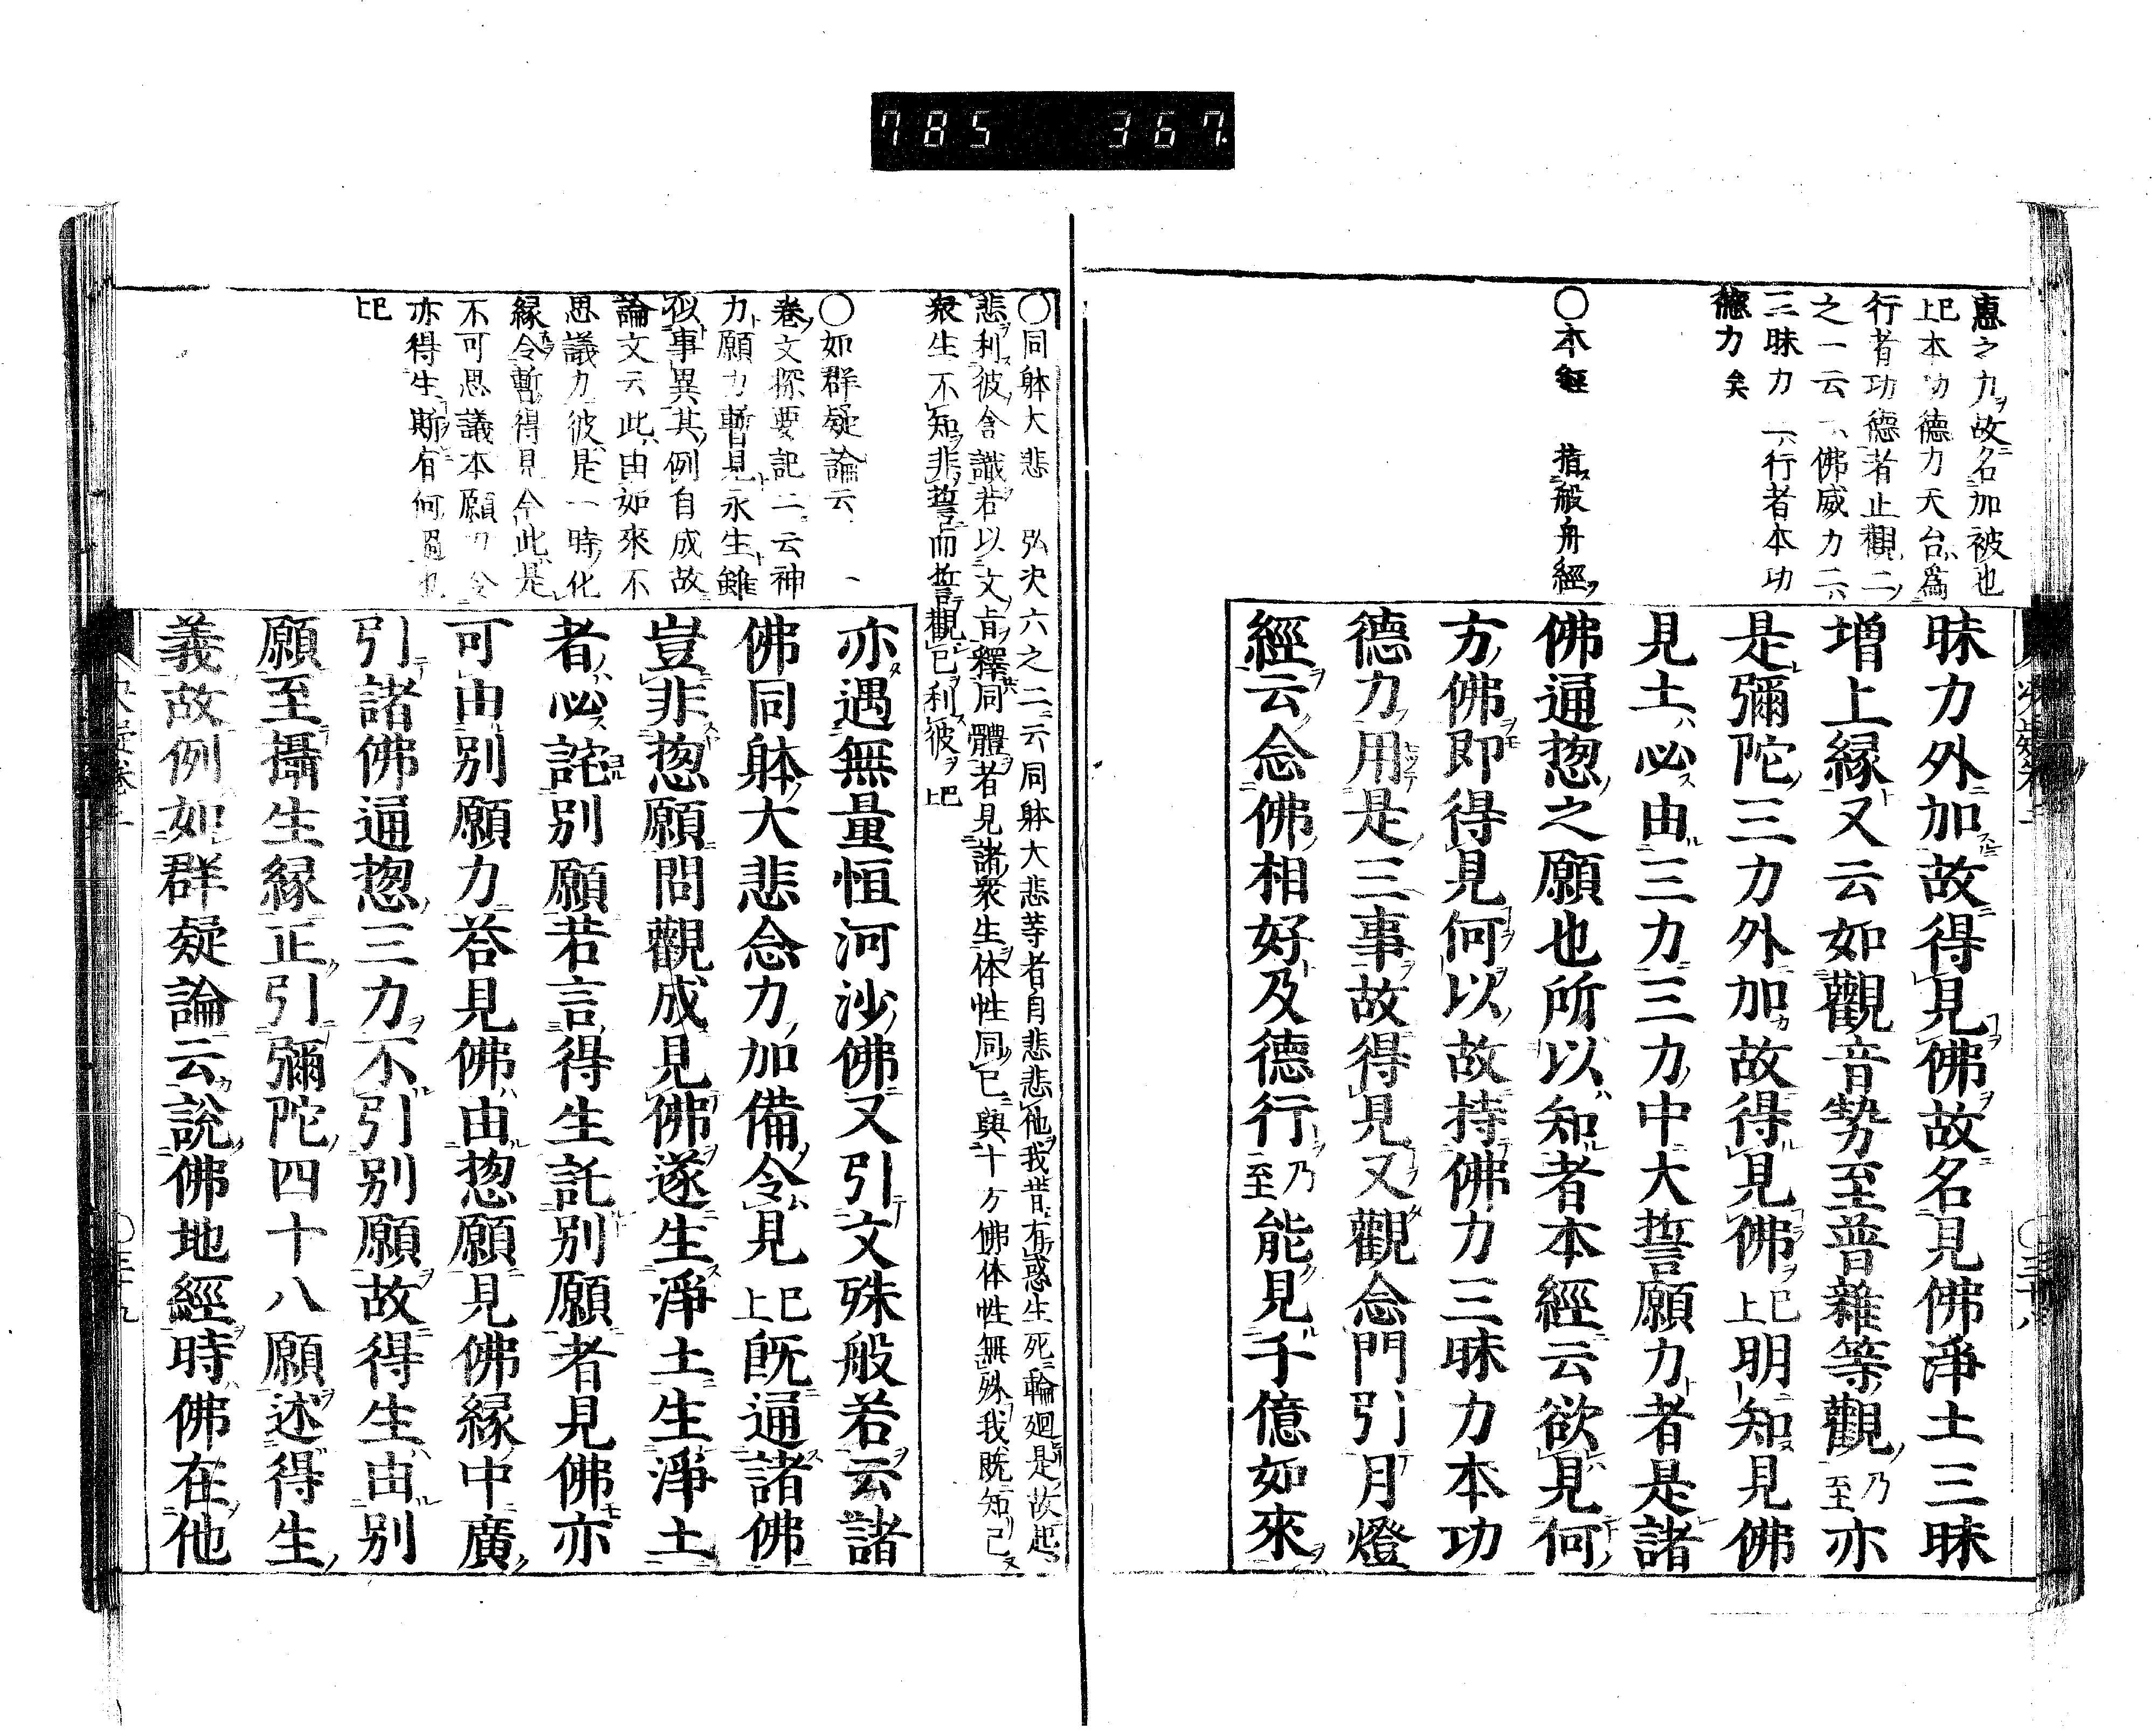 785 367
惠之力故名加被也
已上本功德力天台爲
行者功德者止觀二
之一云一佛威力二
三昧力一行者本功
德力矣
○本經 指般舟經
昧力外加故得見佛故名見佛淨土三昧
增上緣又云如觀音勢至普雜等觀乃至亦
是彌陀三力外加故得見佛已上明知見佛
見土必由三力三力中大誓願力者是諸
佛通惣之願也所以知者本經云欲見何
方佛即得見何以故持佛力三昧力本功
德力用是三事故得見又觀念門引月燈
經云念佛相好及德行乃至能見千億如來
○同躰大悲 弘决六之二云同躰大悲等者自悲悲他我昔有惑生死輪廻是故起
悲利彼含識若以文旨釋同體者見諸衆生体性同已與十方佛体性無殊我既知己
衆生不知非誓而誓觀已利彼已上
○如群疑論云
卷文探要記二云神
力願力暫見永生雖
似事異其例自成故
論文云此由如來不
思議力彼是一時化
緣令暫得見今此是
不可思議本願力令
亦得生斯有何過也
已上
亦遇無量恒河沙佛又引文殊般若云諸
佛同躰大悲念力加備令見已上既通諸佛
豈非惣願問觀成見佛遂生淨土生淨土
者必託別願若言得生託別願者見佛亦
可由別願力荅見佛由惣願見佛緣中廣
引諸佛通惣三力不引別願故得生由別
願至攝生緣正引彌陀四十八願述得生
義故例如群疑論云說佛地經時佛在他